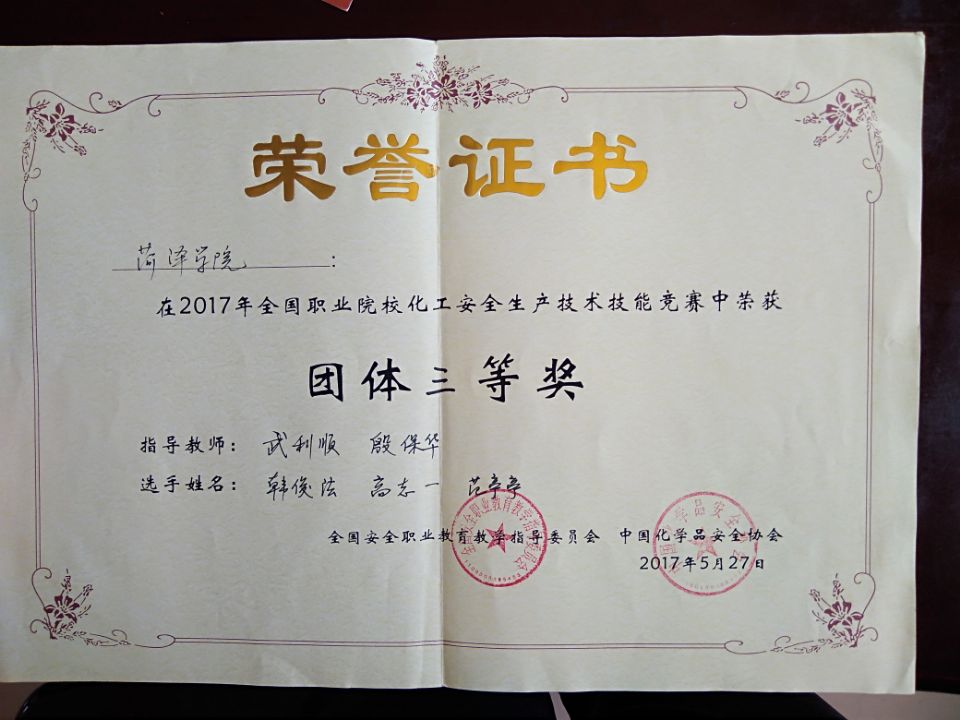 荣誉证书
菏泽学院：
在2017年全国职业院校化工安全生产技术技能竞赛中荣获
团体三等奖
指导教师： 武利顺 殷保华
选手姓名： 韩俊法 高志一 范亭亭
全国安全职业教育教学指导委员会 中国化学品安全协会
2017年5月27日
全国安全职业教育教学指导委员会
中国化学品安全协会